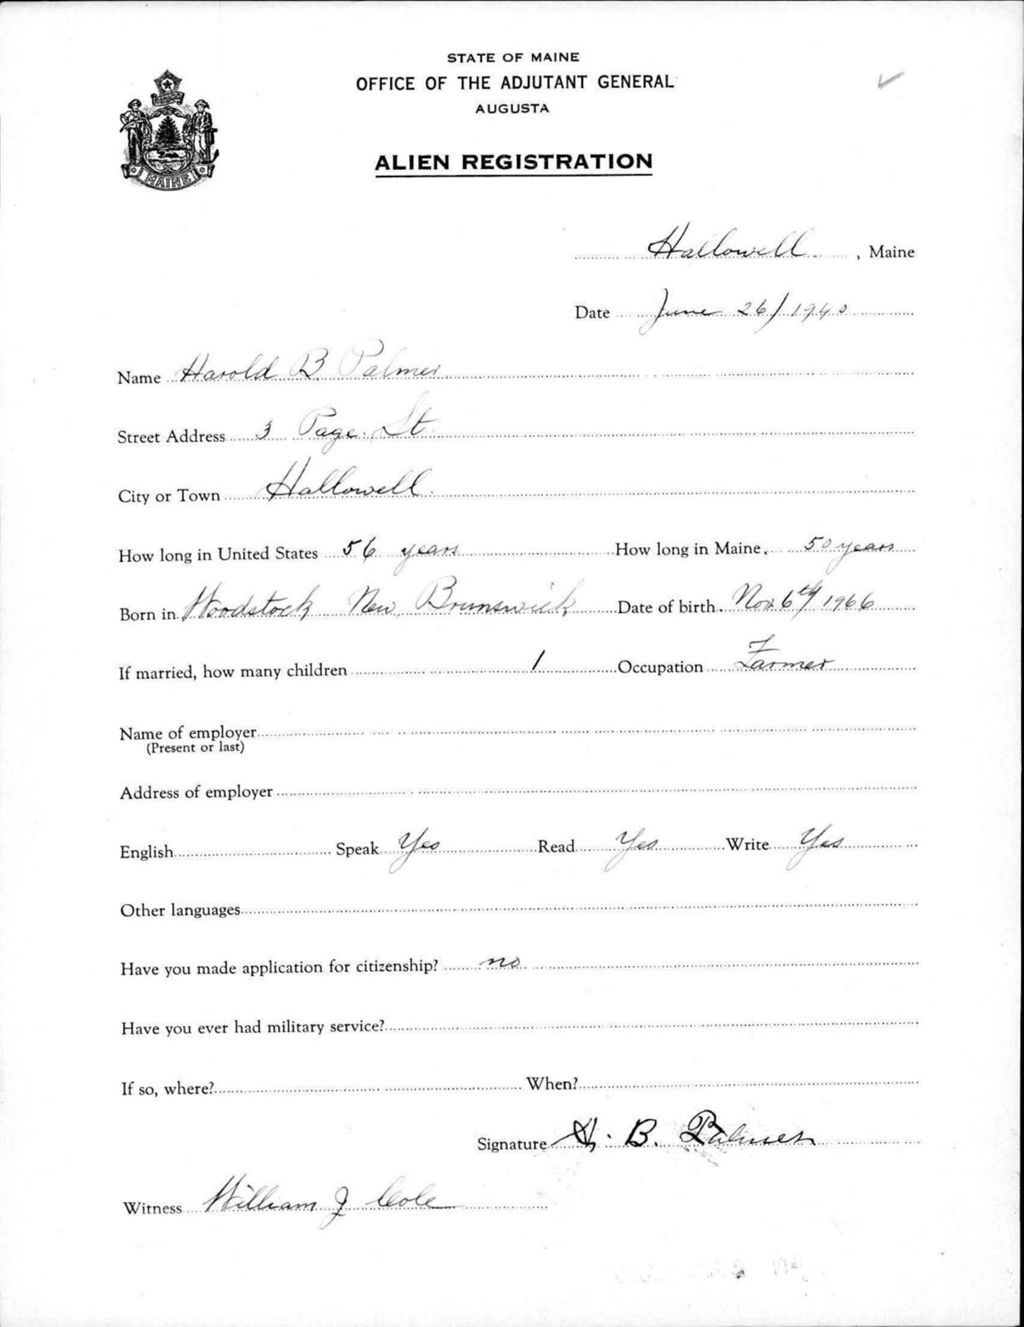 STATE OF MAINE
OFFICE OF THE ADJUTANT GENERAL
AUGUSTA
ALIEN REGISTRATION
MAINE
Hallowell, Maine
Date June 26/1940
Name Harold B. Palmer
Street Address 3 Page St.
City or Town Hallowell.
How long in United States 56 years How long in Maine 50 years
Born in Woodstock New Brunswick Date of birth Nov 6th/1966
If married, how many children 1 Occupation Farmer
Name of employer
(Present or last)
Address of employer
English Speak Yes Read Yes Write Yes
Other languages
Have you made application for citizenship? no
Have you ever had military service?
If so, where? When?
Signature H. B. Palmer
Witness William J Cole